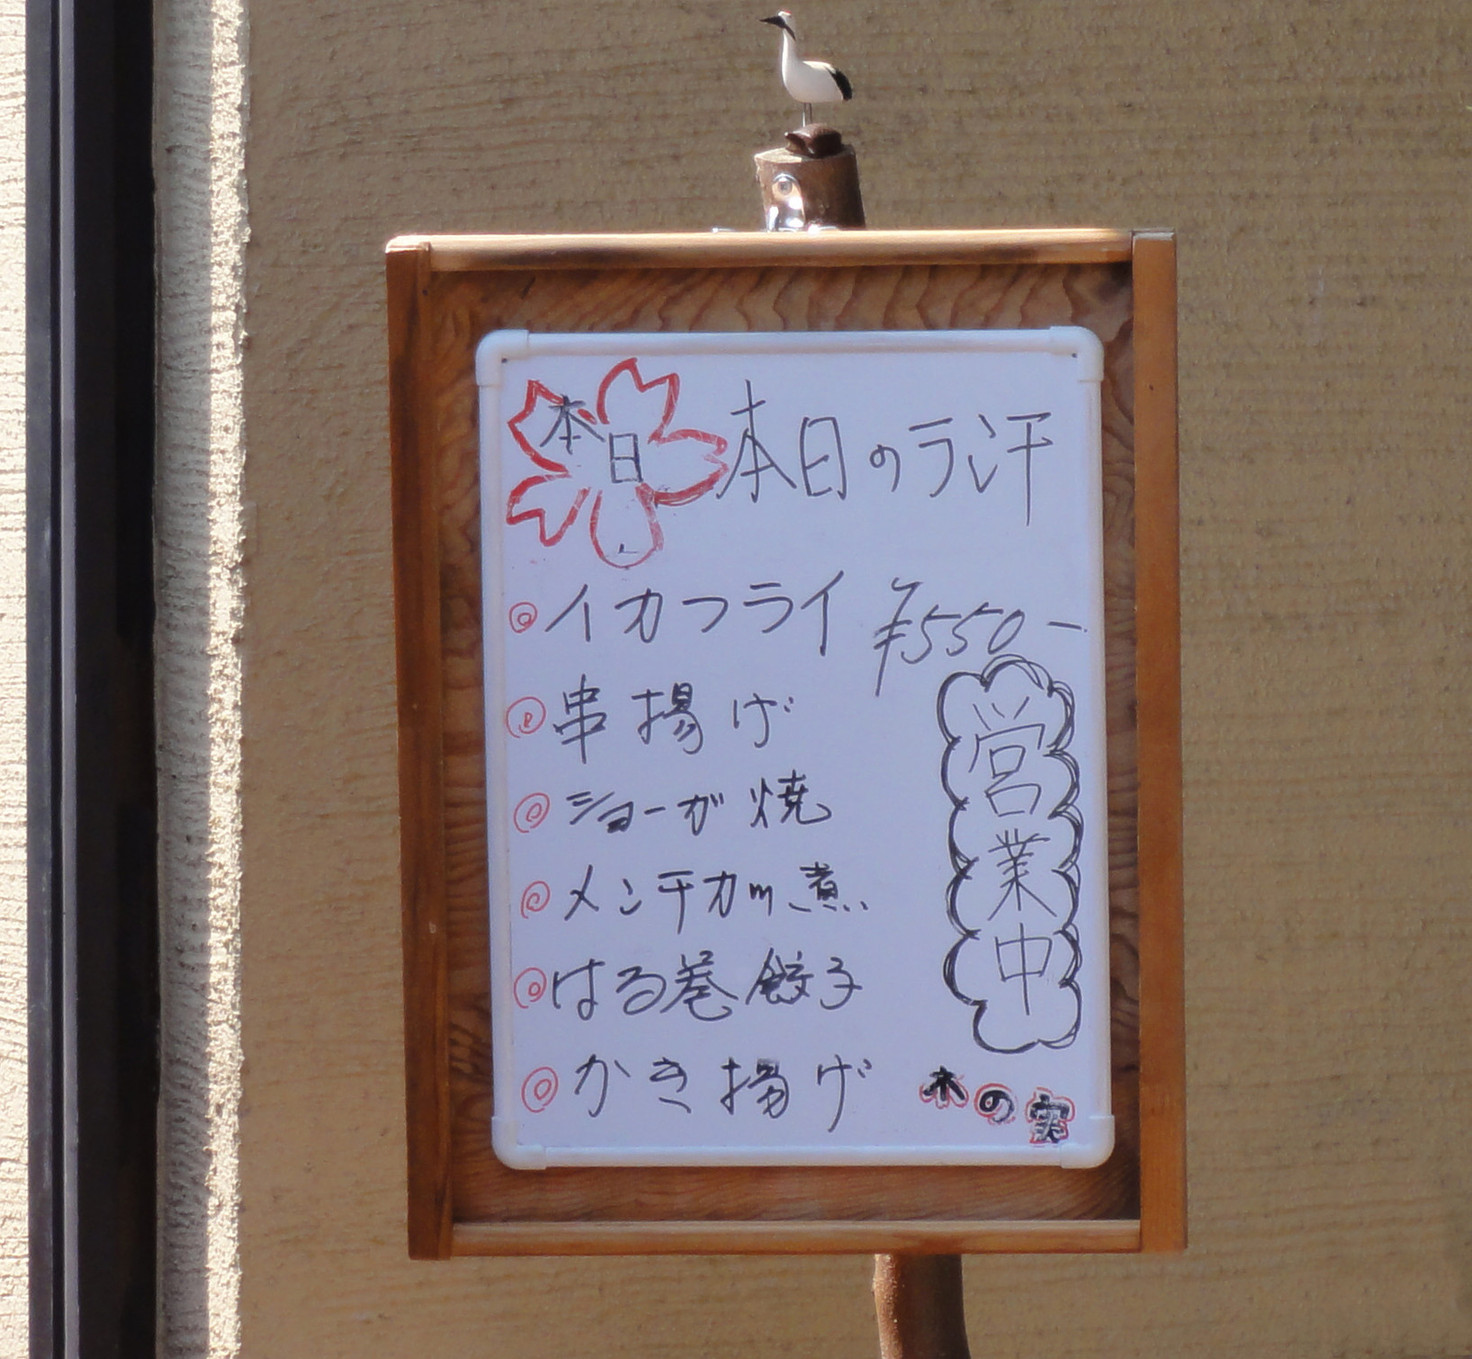 本日
本日のランチ
イカフライ ¥550-
串揚げ
ショーガ焼
メンチカツ煮
はる巻餃子
かき揚げ
営業中
木の実